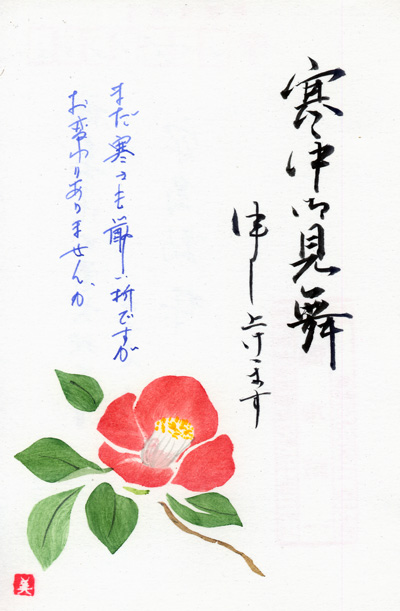 寒中御見舞
申し上げます
まだ寒さも厳しい折ですが
お変わりありませんか
美